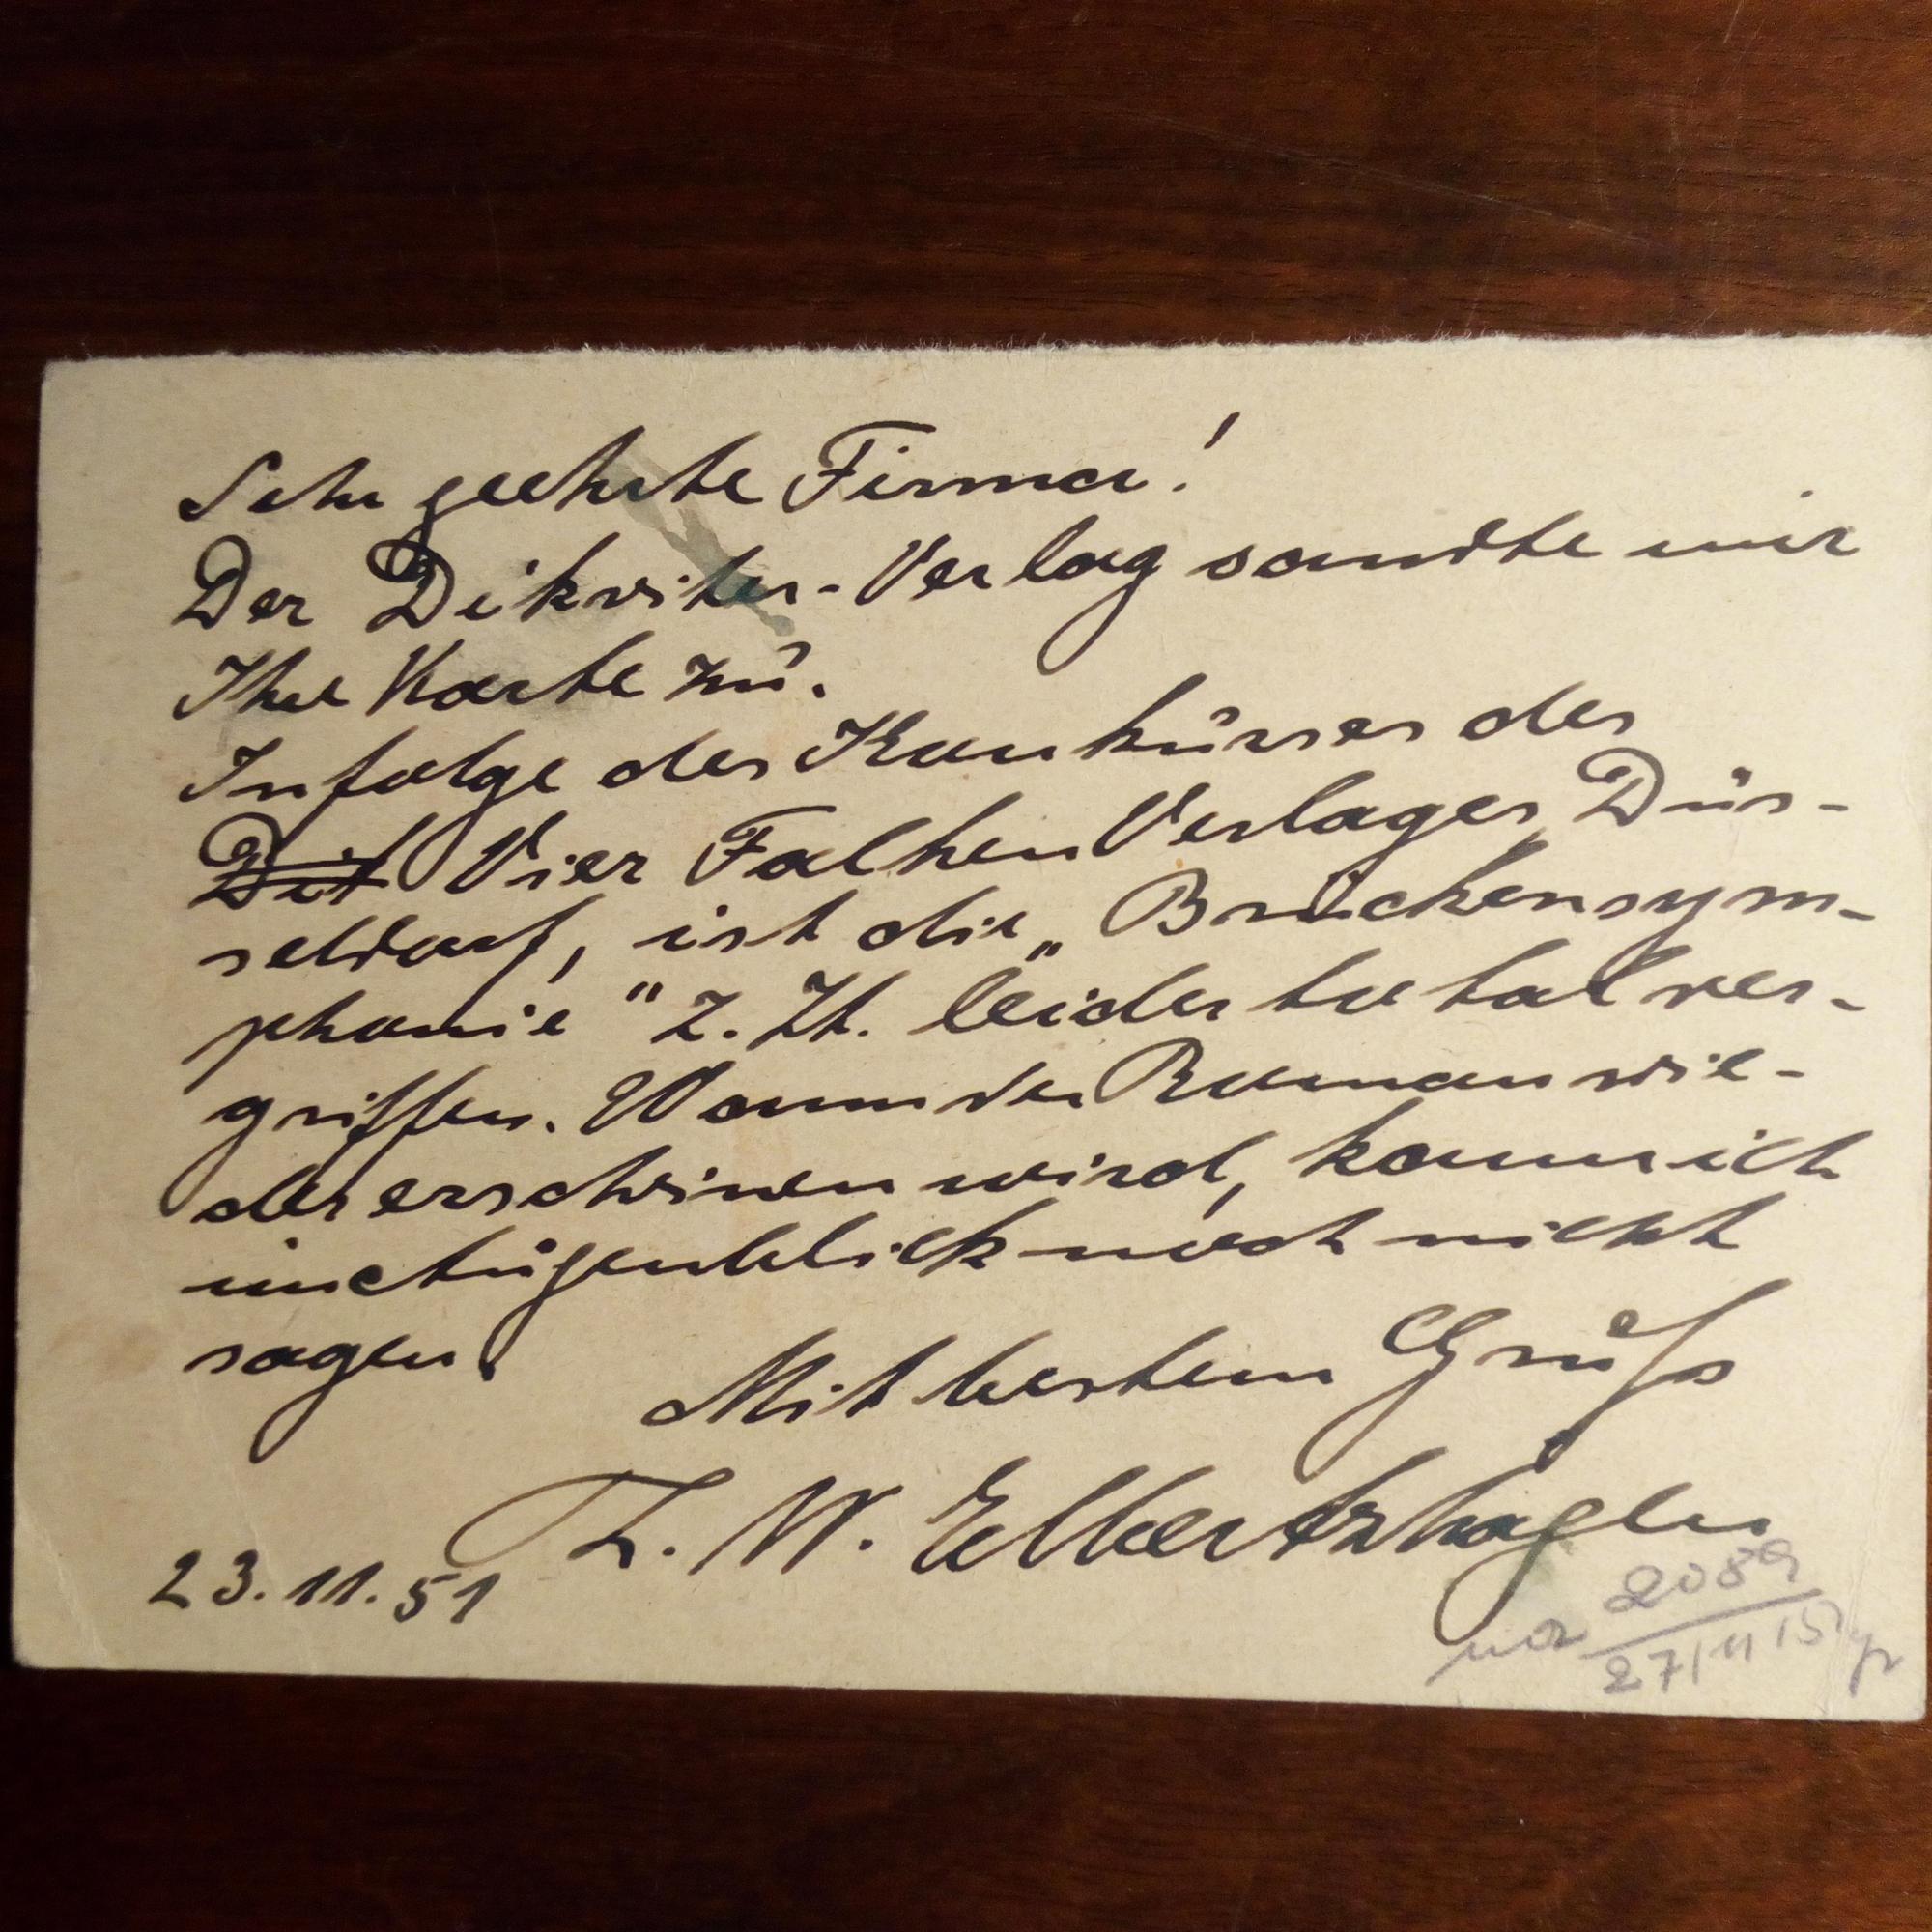 Sehr geehrte Firma!
Der Dikreiter-Verlag sandte mir
Ihre Karte zu.
Infolge des Konkurses des
Vier Falken Verlages, Düs-
seldorf, ist die „Brückensym-
phonie" z. Zt. leider total ver-
griffen. Wann der Roman wie-
der erscheinen wird, kann ich
im Augenblick noch nicht
sagen.
Mit bestem Gruß
T. W. Elbertzhagen
23.11.51
2089
27/11/51